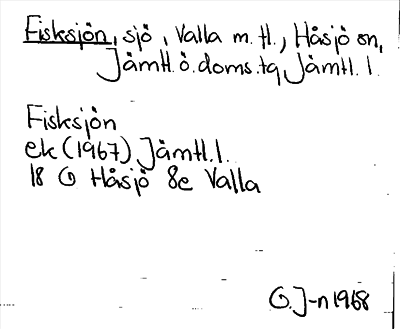 Fisksjön, sjö, Valla m. fl., Håsjö sn,
Jämtl. ö. doms. tq, Jämtl. l.
Fisksjön
ek (1967) Jämtl. l.
18 G Håsjö 8e Valla
G. J-n 1968